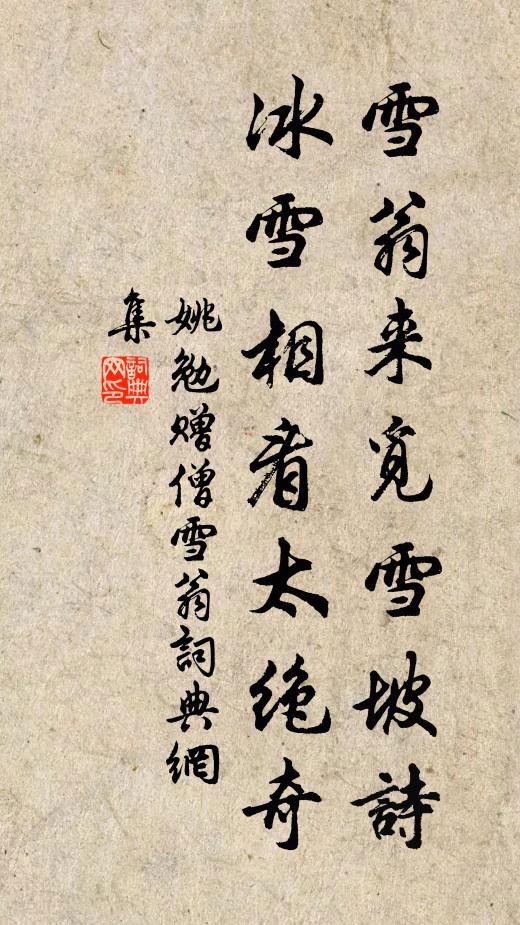 雪翁来觅雪坡詩
冰雪相看太绝奇
姚勉赠僧雪翁詞典網
集
詞典
网印